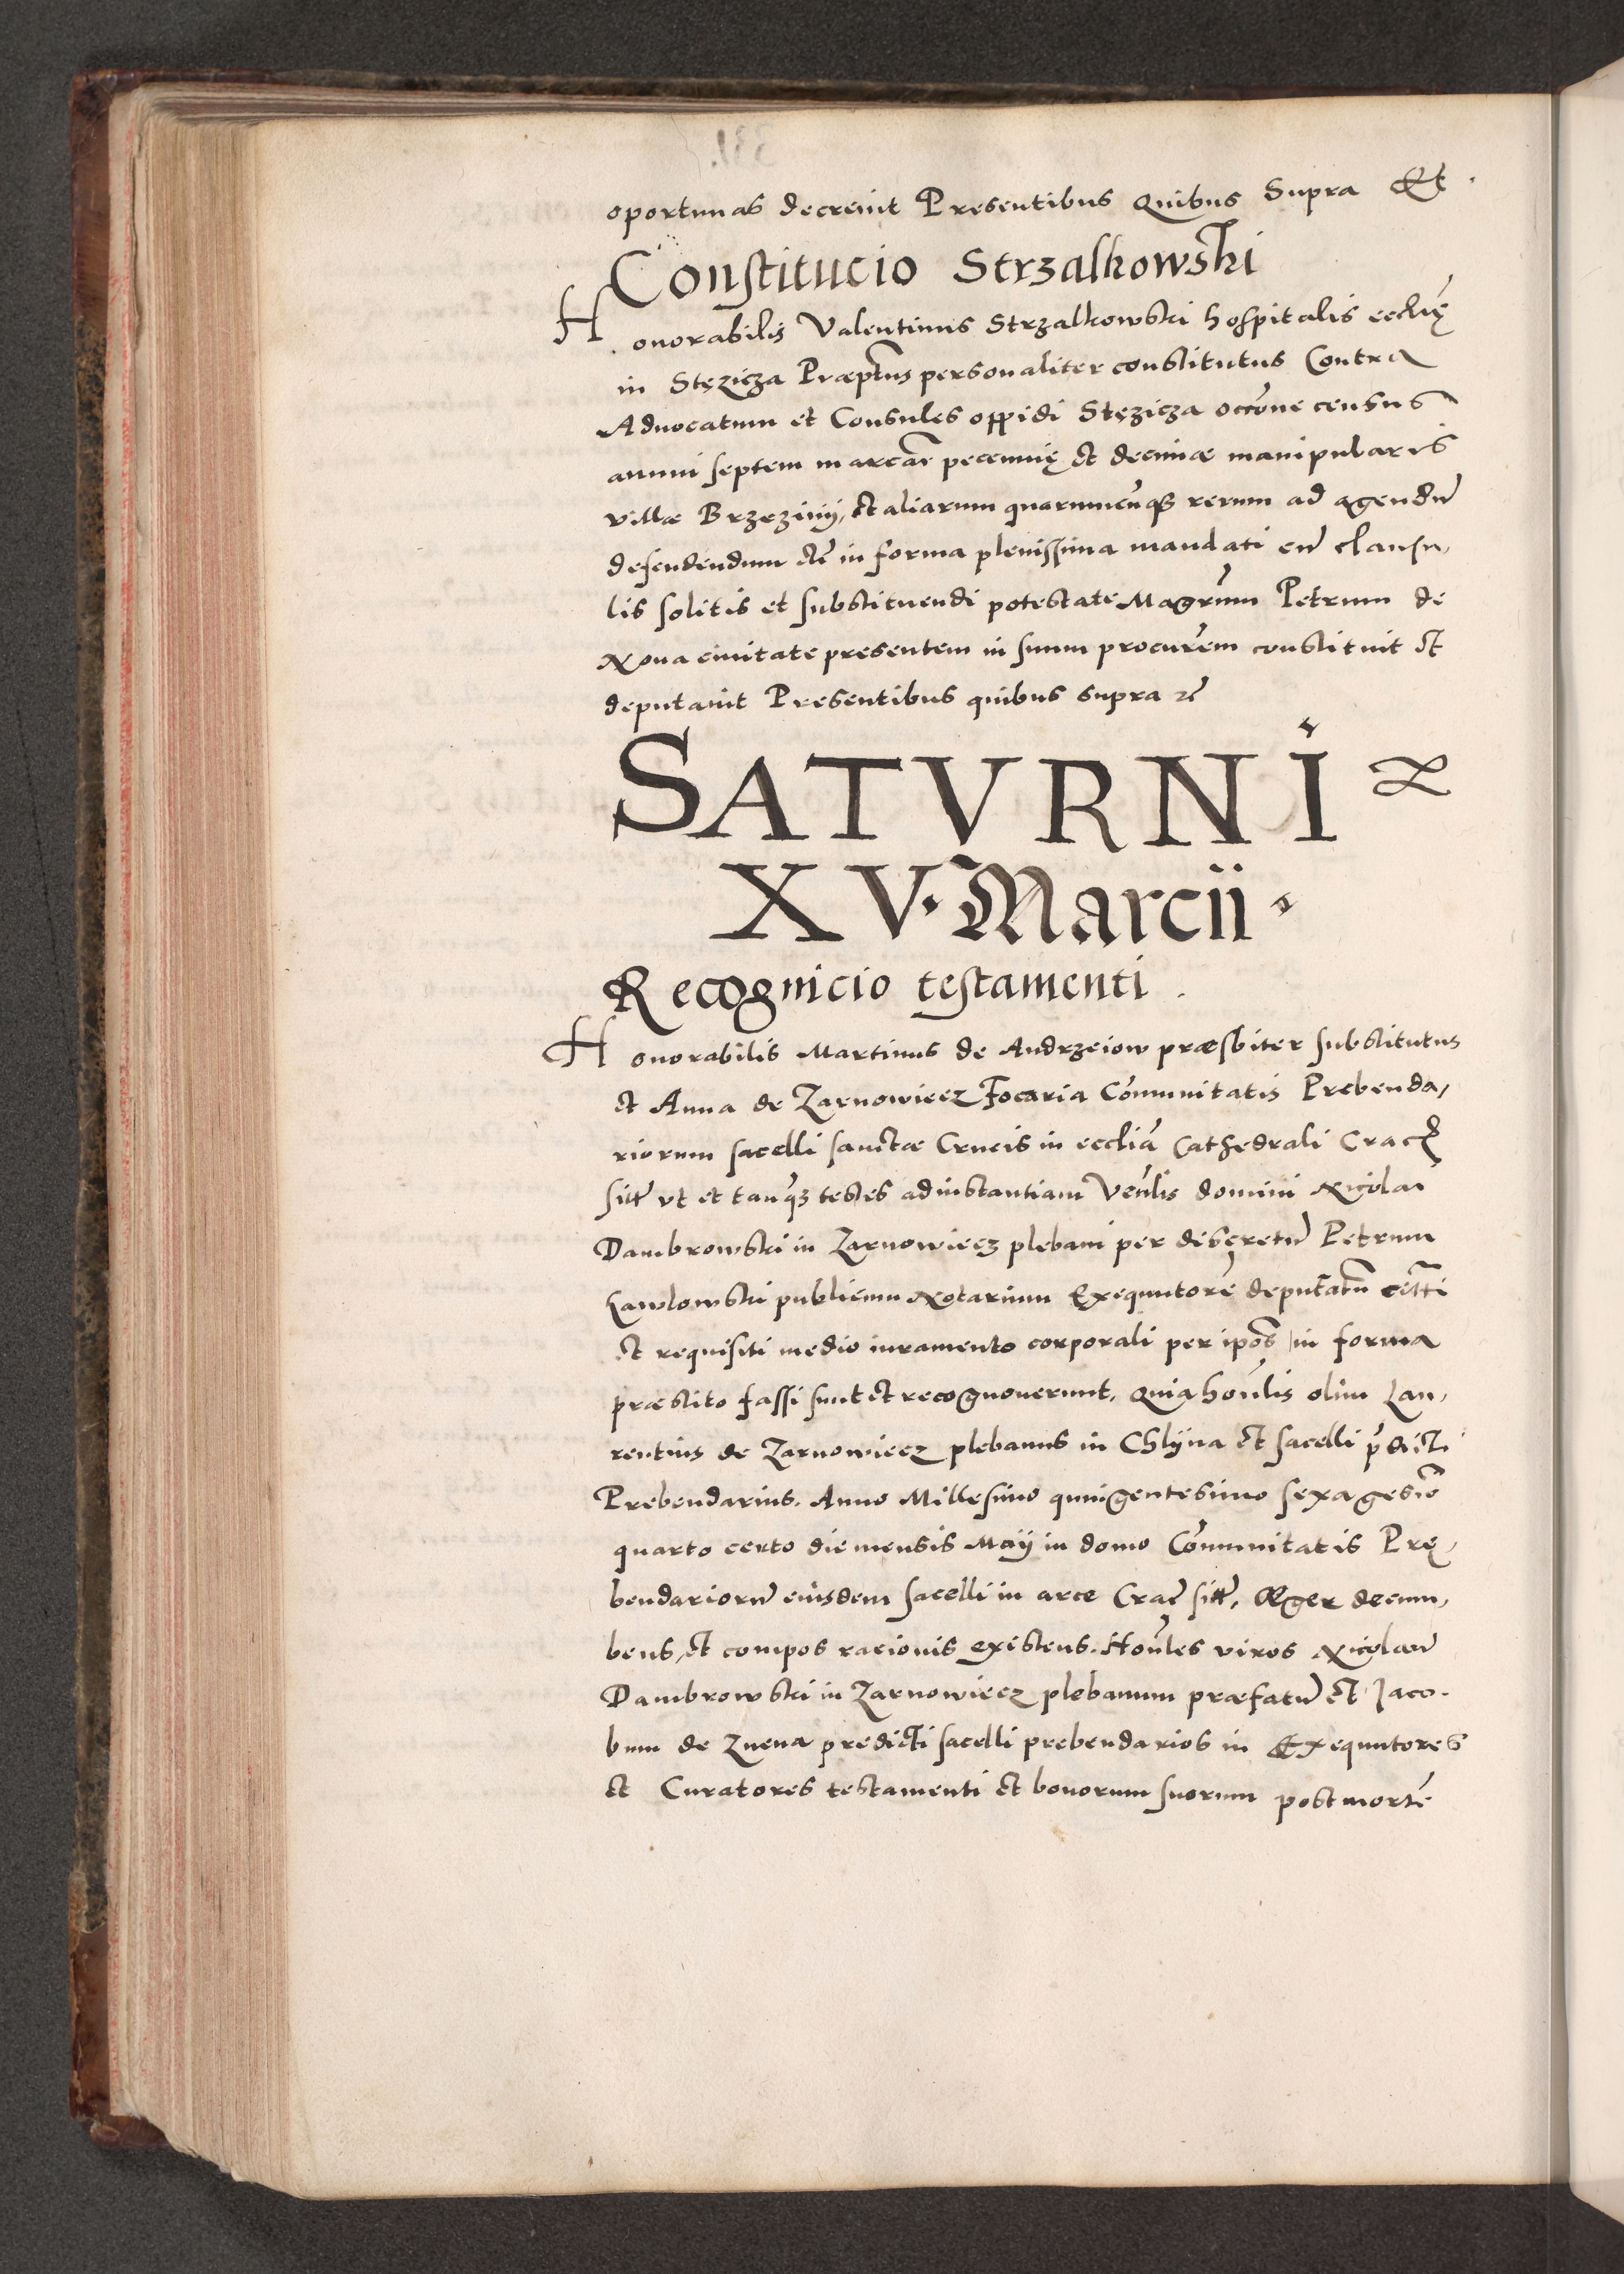 oportunas decrevit Presentibus Quibus Supra Et.
Constitucio Strzalkowski
Honorabilis Valentinus Strzalkowski hospitalis eccliȩ
in Stȩzicza Præptus personaliter constitutus Contra
Aduocatum et Consules oppidi Stȩzicza occõne census
annui septem marcar pecuniȩ et decimæ manipularis
villæ Brzeziny, et aliarum quarumcunqz rerum ad agendũ
defendendum etc in forma plenissima mandati cũ clausu,
lis solitis et substituendi potestate Magrum Petrum de
Noua ciuitate presentem in suum procurem constituit et
deputauit Presentibus quibus supra etc
SATVRNI
XV. Marcii.
Recognicio testamenti.
Honorabilis Martinus de Andrzeiow præsbiter substitutus
et Anna de Zarnowiecz Focaria Cõmunitatis Prebenda,
riorum sacelli sanctæ Crucis in eccliã Cathedrali Crac
sitt vt et tanqz testes ad instantiam Veñlis domini Nicolai
Dambrowski in Zarnowiecz plebani per discretũ Petrum
publicum Notarium Exequutorẽ deputatũ citati
et requisiti medio iuramento corporali per ipos in forma
præstito fassi sunt et recognouerunt, Quia hoñlis olim Lau,
rentius de Zarnowiecz plebanus in Chlyna et sacelli p̃dicti
Prebendarius. Anno Millesimo quingentesimo sexagesio
quarto certo die mensis Maij in domo Cõmunitatis Prȩ,
bendariorũ eiusdem sacelli in arce Crac sitt, Æger decum,
bens, et compos racionis existens. Hoñles viros Nicolaũ
Dambrowski in Zarnowiecz plebanum præfatũ et Jaco.
bum de Znena predicti sacelli prebendarios in Exequutores
et Curatores testamenti et bonorum suorum post mortẽ